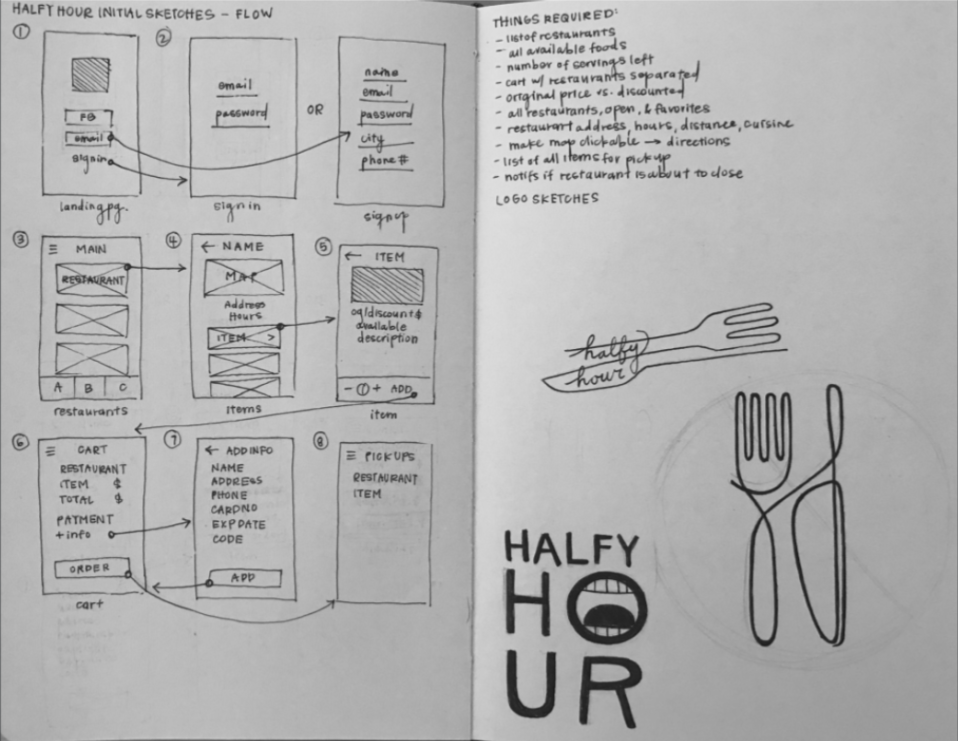 HALFY HOUR INITIAL SKETCHES - FLOW
①
FB
email
signin
landing pg.
②
email
password
sign in
OR
name
email
password
city
phone #
signup
③
MAIN
RESTAURANT
A B C
restaurants
④
← NAME
MAP
Address
Hours
ITEM >
Items
⑤
← ITEM
og/discount $
available
description
- ① + ADD
item
⑥
CART
RESTAURANT
ITEM $
TOTAL $
PAYMENT
+ info
ORDER
cart
⑦
← ADD INFO
NAME
ADDRESS
PHONE
CARD NO
EXP DATE
CODE
ADD
⑧
PICKUPS
RESTAURANT
ITEM
THINGS REQUIRED:
- list of restaurants
- all available foods
- number of servings left
- cart w/ restaurants separated
- original price vs. discounted
- all restaurants, open, & favorites
- restaurant address, hours, distance, cuisine
- make map clickable → directions
- list of all items for pickup
- notifs if restaurant is about to close
LOGO SKETCHES
halfy
hour
HALFY
HO
UR